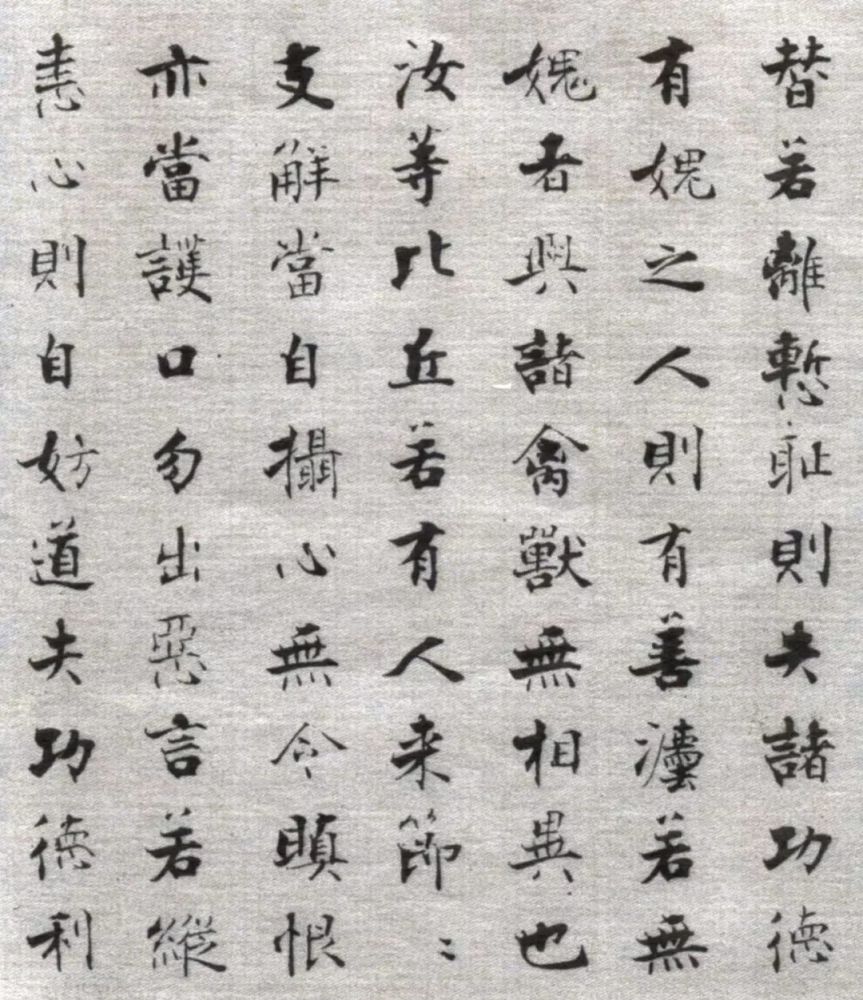 替若離慙耻則失諸功德
有媿之人則有善灋若無
媿者與諸禽獸無相異也
汝等比丘若有人来節〻
支解當自攝心無令瞋恨
亦當護口勿出惡言若縱
恚心則自妨道失功德利